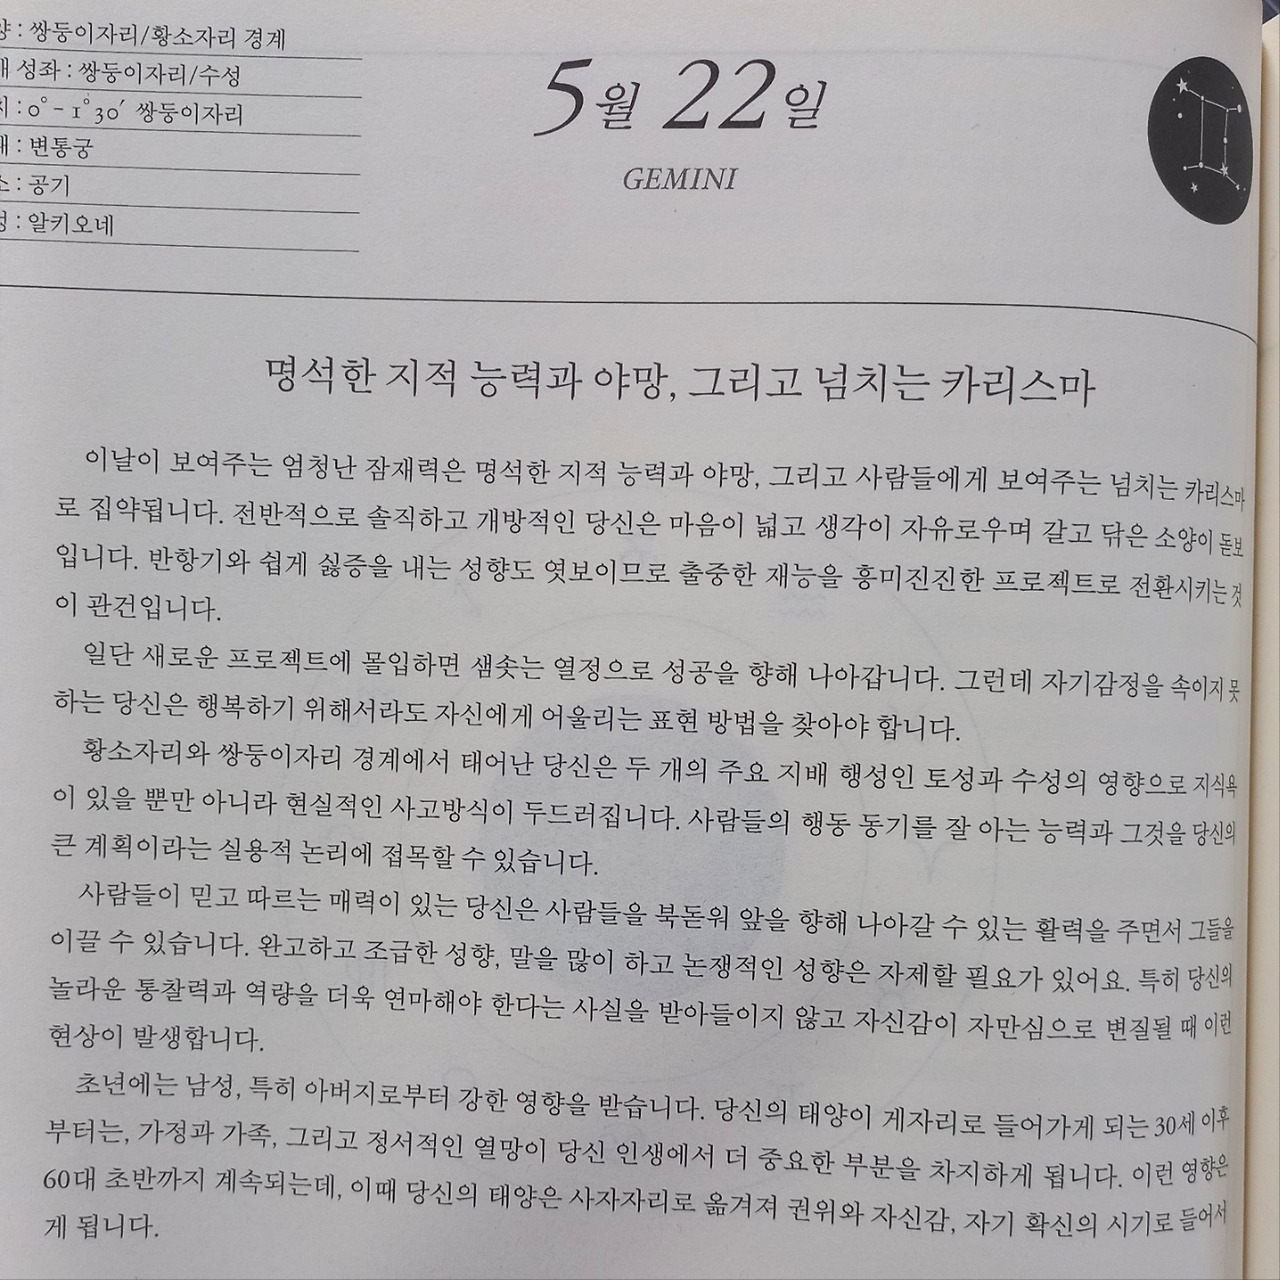 양 : 쌍둥이자리/황소자리 경계
배 성좌 : 쌍둥이자리/수성
치 : 0° - 1° 30′ 쌍둥이자리
태 : 변통궁
소 : 공기
성 : 알키오네
5월 22일
GEMINI
명석한 지적 능력과 야망, 그리고 넘치는 카리스마
이날이 보여주는 엄청난 잠재력은 명석한 지적 능력과 야망, 그리고 사람들에게 보여주는 넘치는 카리스마
로 집약됩니다. 전반적으로 솔직하고 개방적인 당신은 마음이 넓고 생각이 자유로우며 갈고 닦은 소양이 돋보
입니다. 반항기와 쉽게 싫증을 내는 성향도 엿보이므로 출중한 재능을 흥미진진한 프로젝트로 전환시키는 것
이 관건입니다.
일단 새로운 프로젝트에 몰입하면 샘솟는 열정으로 성공을 향해 나아갑니다. 그런데 자기감정을 속이지 못
하는 당신은 행복하기 위해서라도 자신에게 어울리는 표현 방법을 찾아야 합니다.
황소자리와 쌍둥이자리 경계에서 태어난 당신은 두 개의 주요 지배 행성인 토성과 수성의 영향으로 지식욕
이 있을 뿐만 아니라 현실적인 사고방식이 두드러집니다. 사람들의 행동 동기를 잘 아는 능력과 그것을 당신의
큰 계획이라는 실용적 논리에 접목할 수 있습니다.
사람들이 믿고 따르는 매력이 있는 당신은 사람들을 북돋워 앞을 향해 나아갈 수 있는 활력을 주면서 그들을
이끌 수 있습니다. 완고하고 조급한 성향, 말을 많이 하고 논쟁적인 성향은 자제할 필요가 있어요. 특히 당신의
놀라운 통찰력과 역량을 더욱 연마해야 한다는 사실을 받아들이지 않고 자신감이 자만심으로 변질될 때 이런
현상이 발생합니다.
초년에는 남성, 특히 아버지로부터 강한 영향을 받습니다. 당신의 태양이 게자리로 들어가게 되는 30세 이후
부터는, 가정과 가족, 그리고 정서적인 열망이 당신 인생에서 더 중요한 부분을 차지하게 됩니다. 이런 영향은
60대 초반까지 계속되는데, 이때 당신의 태양은 사자자리로 옮겨져 권위와 자신감, 자기 확신의 시기로 들어서
게 됩니다.